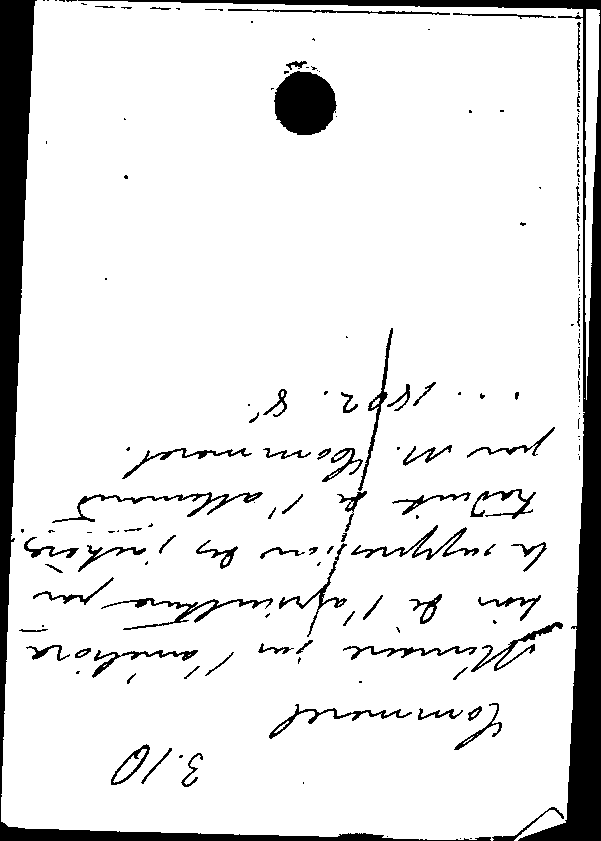 3.10
Commerel
Mémoire sur l'améliora
tion de l'agriculture par
la suppression des jachères,
traduit de l'allemand
par M. Commerel.
... 1802. 8°.